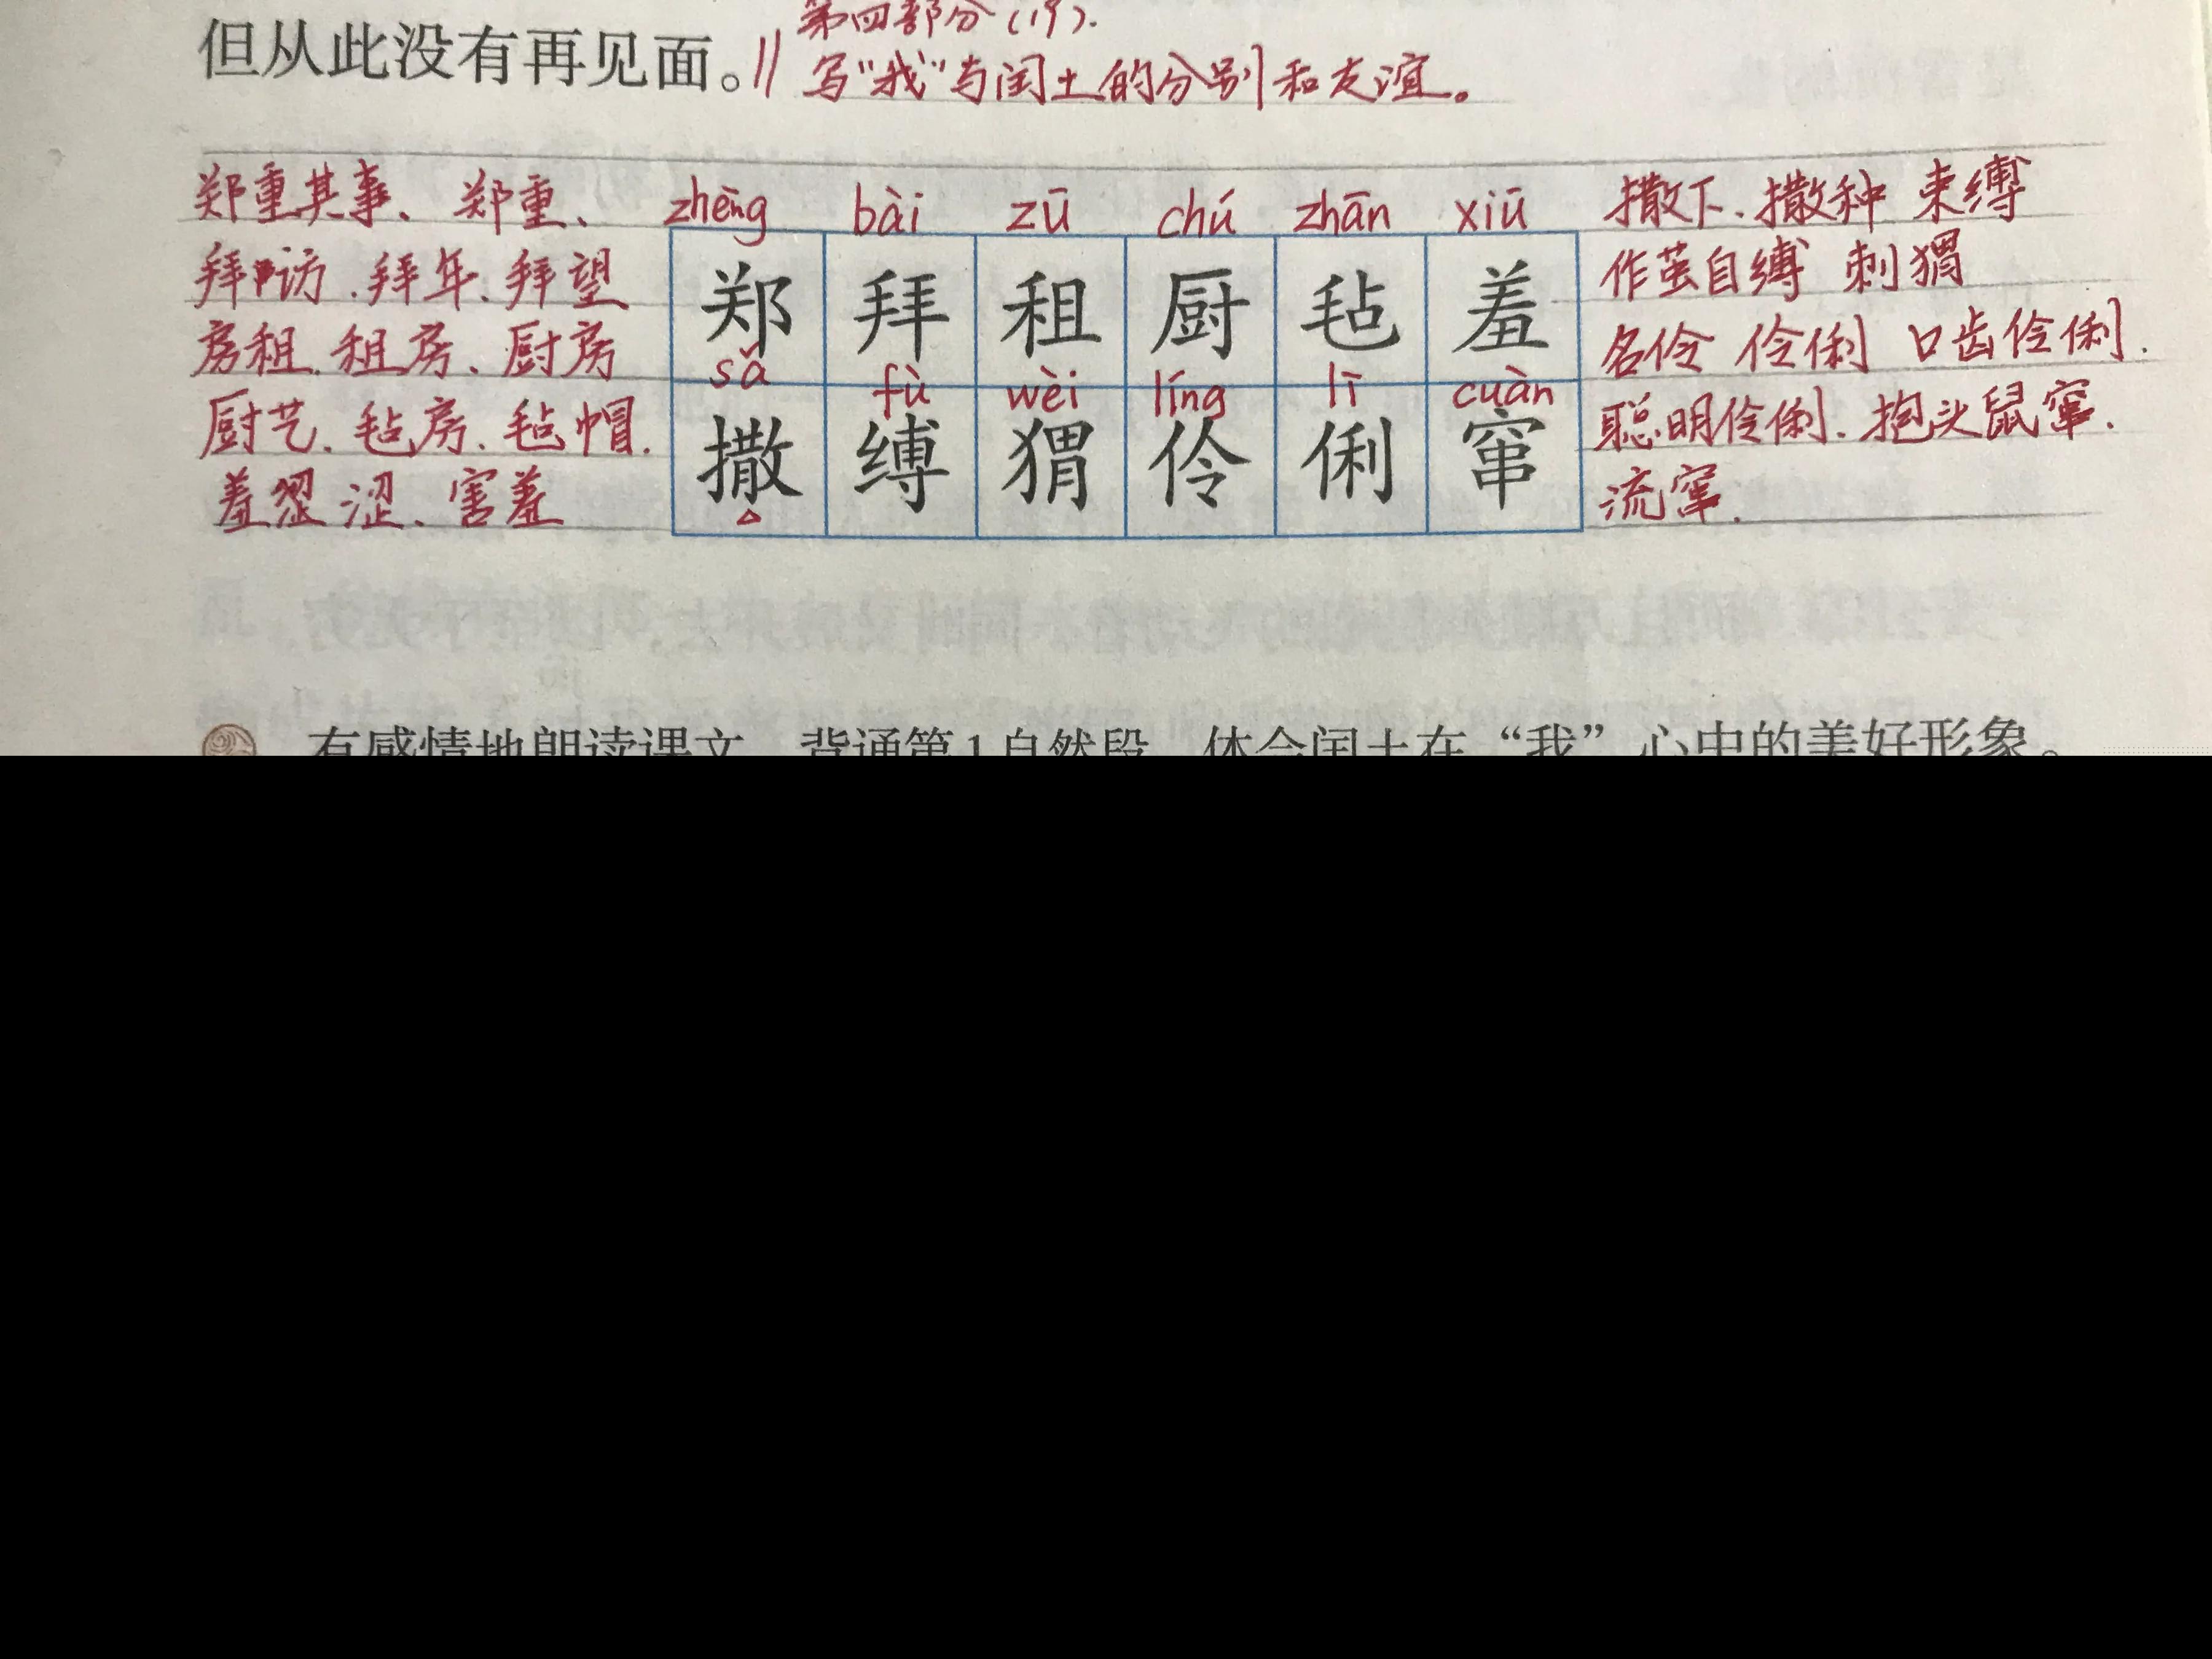 第四部分(19).
但从此没有再见面。‖ 写“我”与闰土的分别和友谊。
郑重其事、郑重、 zhēng bài zū chú zhān xiū 撒下、撒种 束缚
拜访、拜年、拜望 郑 拜 租 厨 毡 羞 作茧自缚 刺猬
房租、租房、厨房 sǎ fù wèi líng lī cuàn 名伶 伶俐 口齿伶俐.
厨艺、毡房、毡帽. 撒 缚 猬 伶 俐 窜 聪明伶俐、抱头鼠窜.
羞涩 涩、害羞 流窜.
有感情地朗读课文，背诵第1自然段，体会闰土在“我”心中的美好形象。